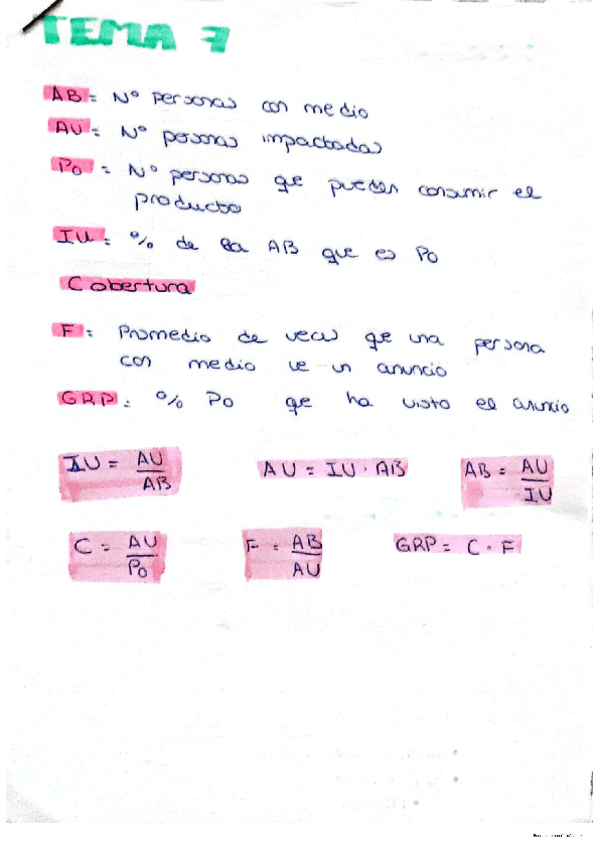 TEMA 7
AB = Nº personas con medio
AU = Nº personas impactadas
Po = Nº personas que pueden consumir el
producto
IU = % de la AB que es Po
Cobertura
F = Promedio de veces que una persona
con medio ve un anuncio
GRP = % Po que ha visto el anuncio
IU = AU / AB AU = IU · AB AB = AU / IU
C = AU / Po F = AB / AU GRP = C · F